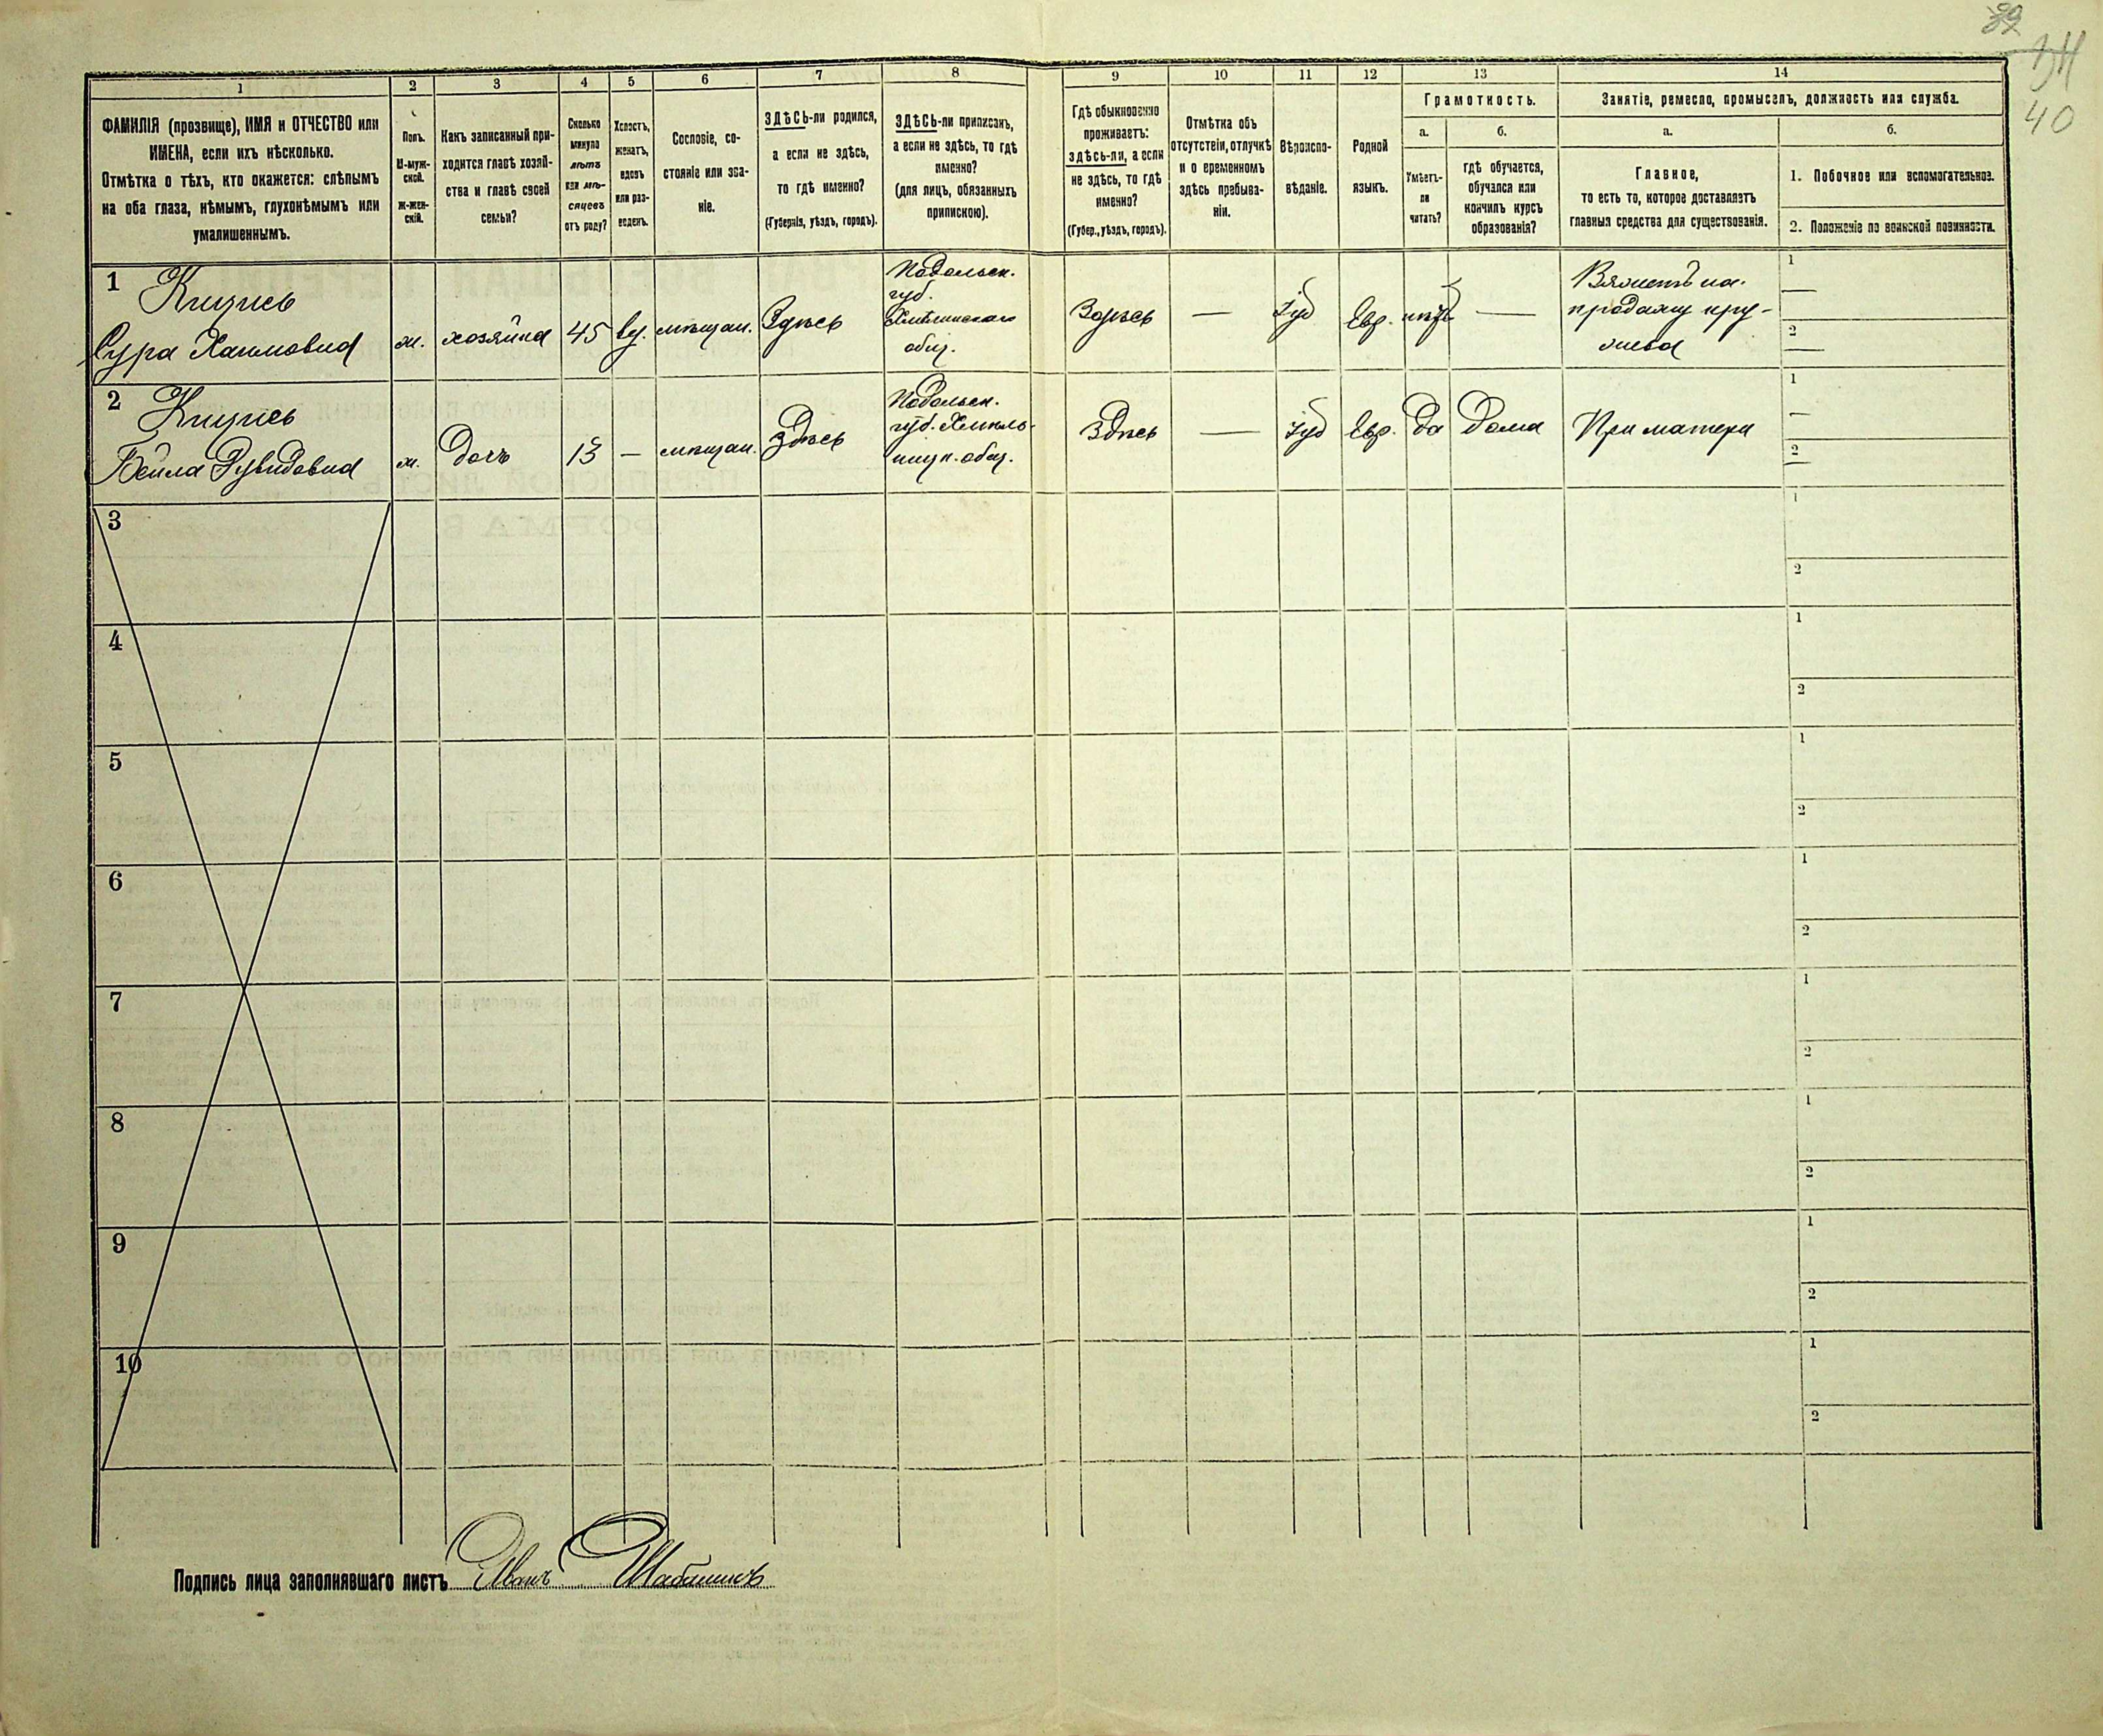 39
40
1
2
3
4
5
6
7
8
9
10
11
12
13
14
ФАМИЛІЯ (прозвище), ИМЯ и ОТЧЕСТВО или
ИМЕНА, если ихъ нѣсколько.
Отмѣтка о тѣхъ, кто окажется: слѣпымъ
на оба глаза, нѣмымъ, глухонѣмымъ или
умалишеннымъ.
Полъ.
М-муж-
ской.
Ж-жен-
скій.
Какъ записанный при-
ходится главѣ хозяй-
ства и главѣ своей
семьи?
Сколько
минуло
лѣтъ
или мѣ-
сяцевъ
отъ роду?
Холостъ,
женатъ,
вдовъ
или раз-
веденъ.
Сословіе, со-
стояніе или зва-
ніе.
ЗДѢСЬ-ли родился,
а если не здѣсь,
то гдѣ именно?
(Губернія, уѣздъ, городъ).
ЗДѢСЬ-ли приписанъ,
а если не здѣсь, то гдѣ
именно?
(для лицъ, обязанныхъ
припискою).
Гдѣ обыкновенно
проживаетъ:
здѣсь-ли, а если
не здѣсь, то гдѣ
именно?
(Губер., уѣздъ, городъ).
Отмѣтка объ
отсутствіи, отлучкѣ
и о временномъ
здѣсь пребыва-
ніи.
Вѣроиспо-
вѣданіе.
Родной
языкъ.
Грамотность.
а.
Умѣетъ-
ли
читать?
б.
гдѣ обучается,
обучался или
кончилъ курсъ
образованія?
Занятіе, ремесло, промыселъ, должность или служба.
а.
Главное,
то есть то, которое доставляетъ
главныя средства для существованія.
б.
1. Побочное или вспомогательное.
2. Положеніе по воинской повинности.
1
Сура Хаимовна
ж.
хозяйка
45
вд.
мѣщан.
Здѣсь
Подольск.
губ.
общ.
Здѣсь
—
Іуд
Евр.
нѣтъ
—
продажу кру-
1
2
2
Бейла Рувидовна
ж.
Дочь
13
—
мѣщан.
Здѣсь
Подольск.
губ. Хмиль-
ницк. общ.
Здѣсь
—
Іуд
Евр.
Да
Дома
При матери
1
2
3
1
2
4
1
2
5
1
2
6
1
2
7
1
2
8
1
2
9
1
2
10
1
2
Подпись лица заполнявшаго листъ Иванъ